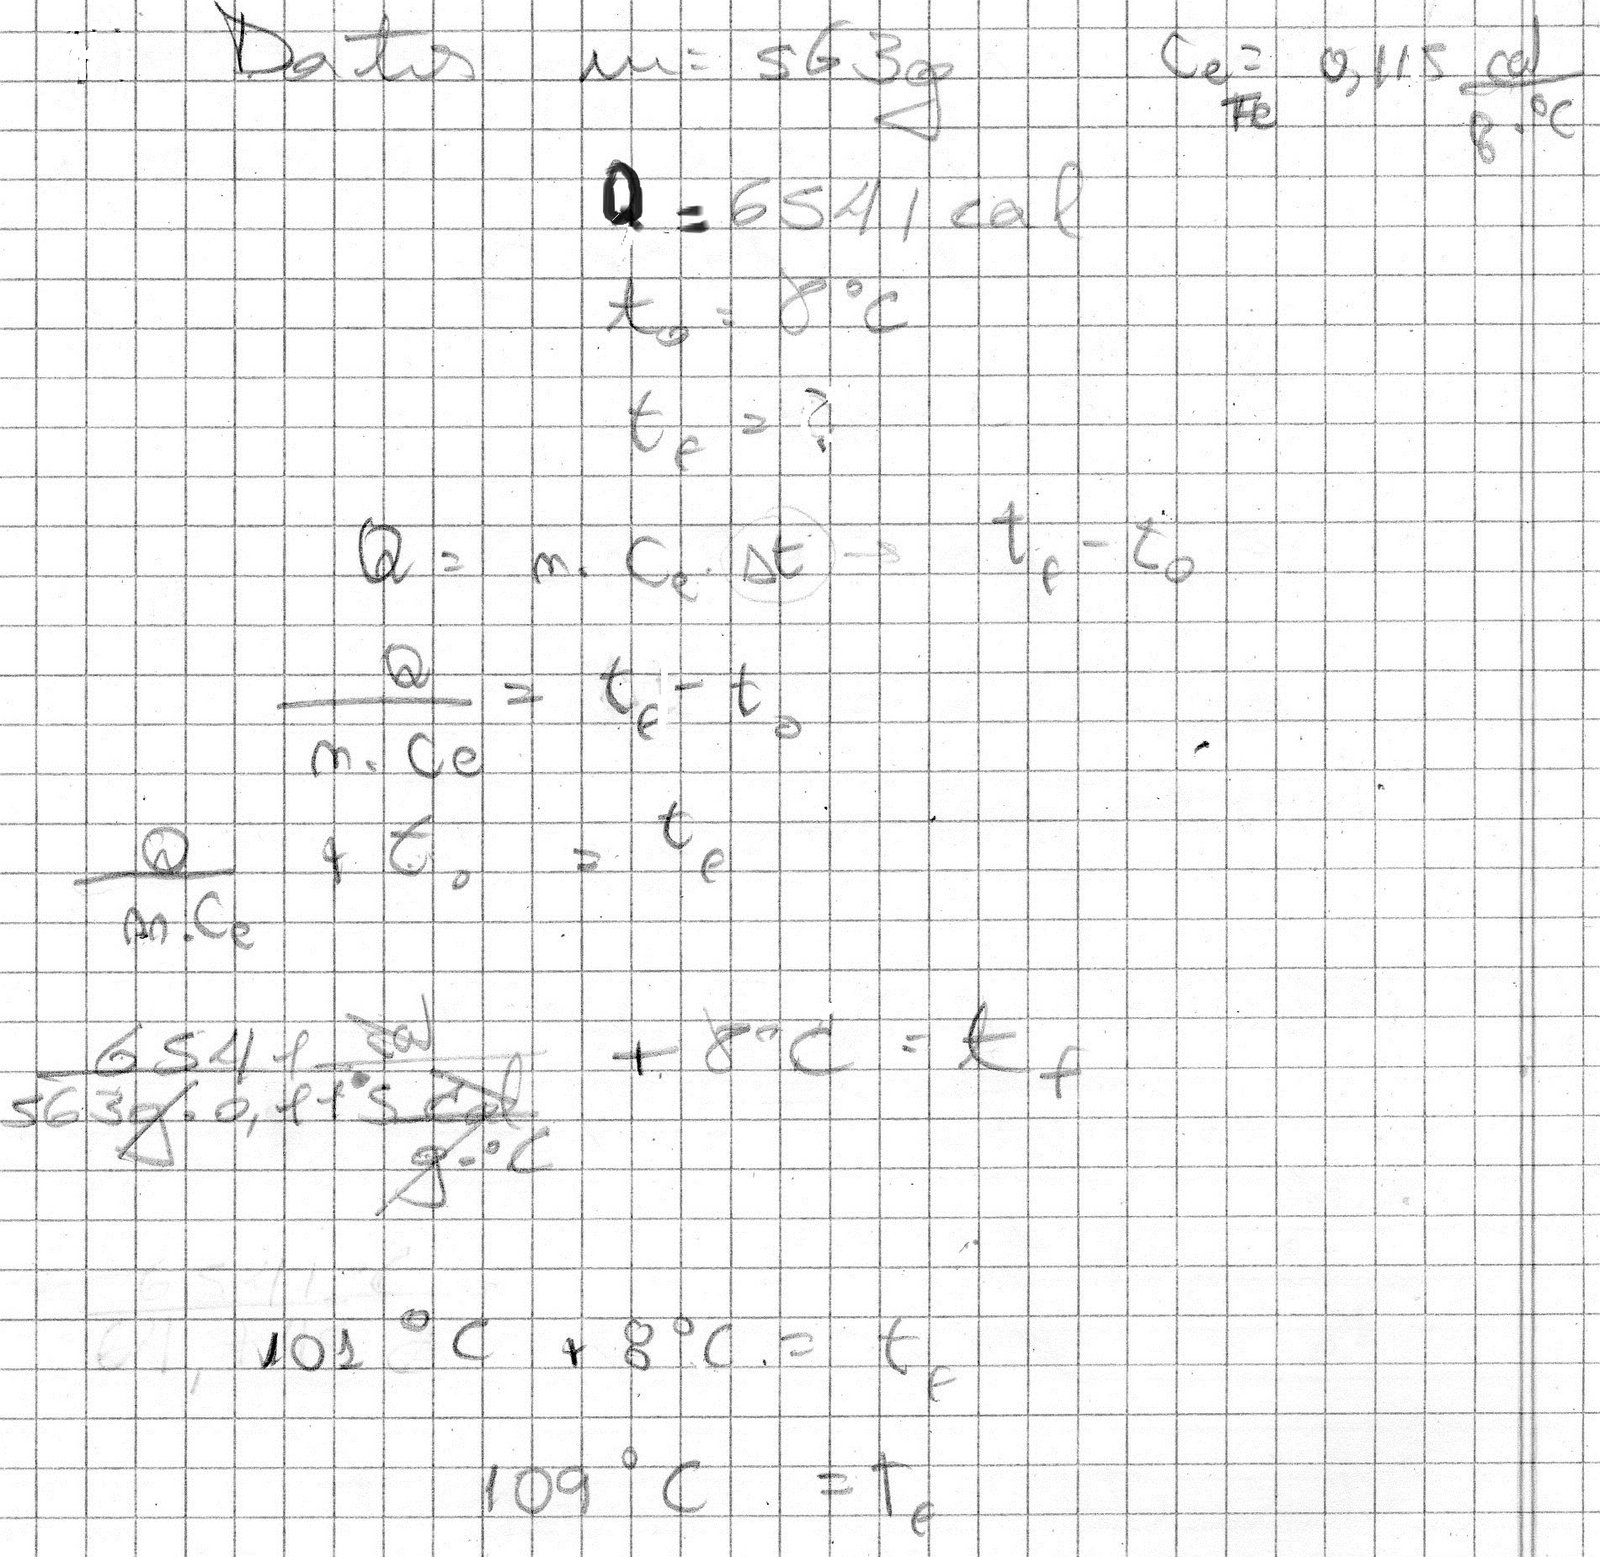 Datos m = 563g Ce Fe = 0,115 cal/g.°C
Q = 6541 cal
to = 8°C
tf = ?
Q = m. Ce. Δt → tf - to
Q/m.Ce = tf - to
Q/m.Ce + to = tf
6541 cal/563g.0,115 cal/g.°C + 8°C = tf
101 °C + 8°C = tf
109 °C = Tf